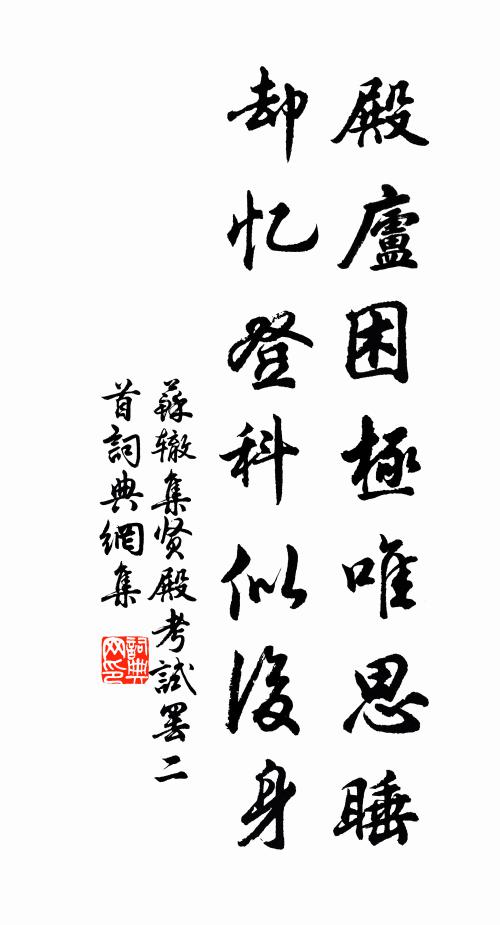 殿廬困極唯思睡
却忆登科似後身
蘇辙集贤殿考試罢二
首詞典網集
詞典
网印